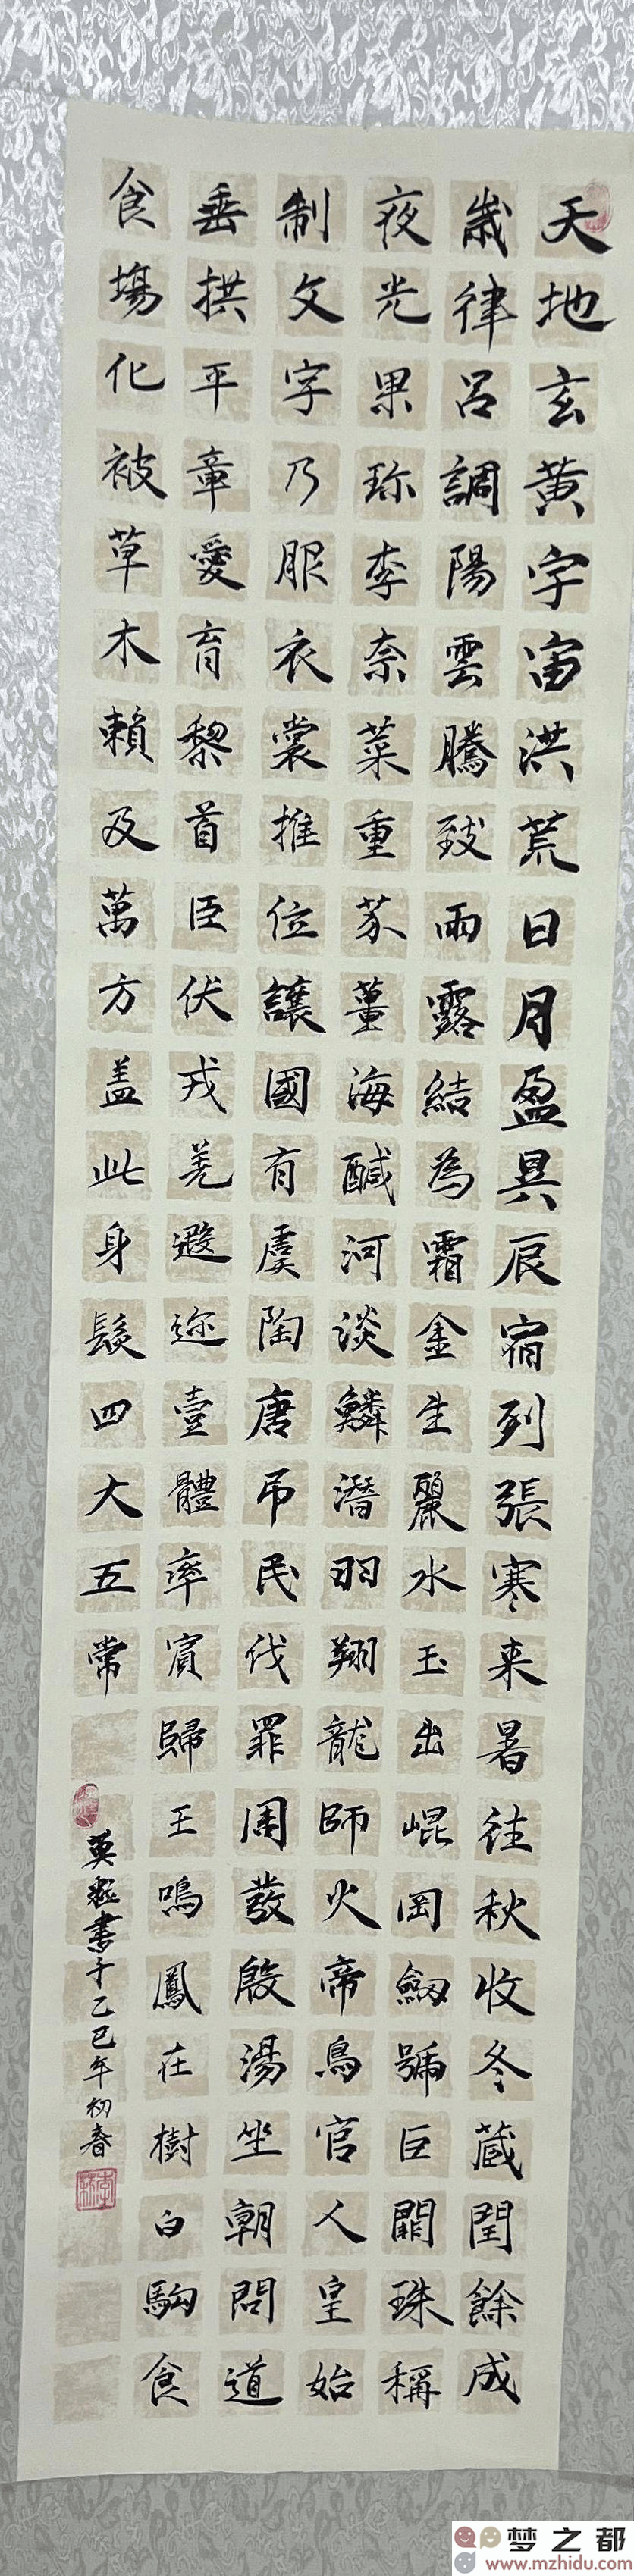 天地玄黄宇宙洪荒日月盈昃辰宿列張寒来暑往秋收冬藏閏餘成
歲律呂調陽雲騰致雨露結為霜金生麗水玉出崐岡劒號巨闕珠稱
夜光果珎李奈菜重芥薑海鹹河淡鱗潛羽翔龍師火帝鳥官人皇始
制文字乃服衣裳推位讓國有虞陶唐吊民伐罪周發殷湯坐朝問道
垂拱平章愛育黎首臣伏戎羌遐迩壹體率賓歸王鳴鳳在樹白駒食
食場化被草木賴及萬方盖此身髮四大五常
書于乙巳年初春
梦之都
www.mzhidu.com